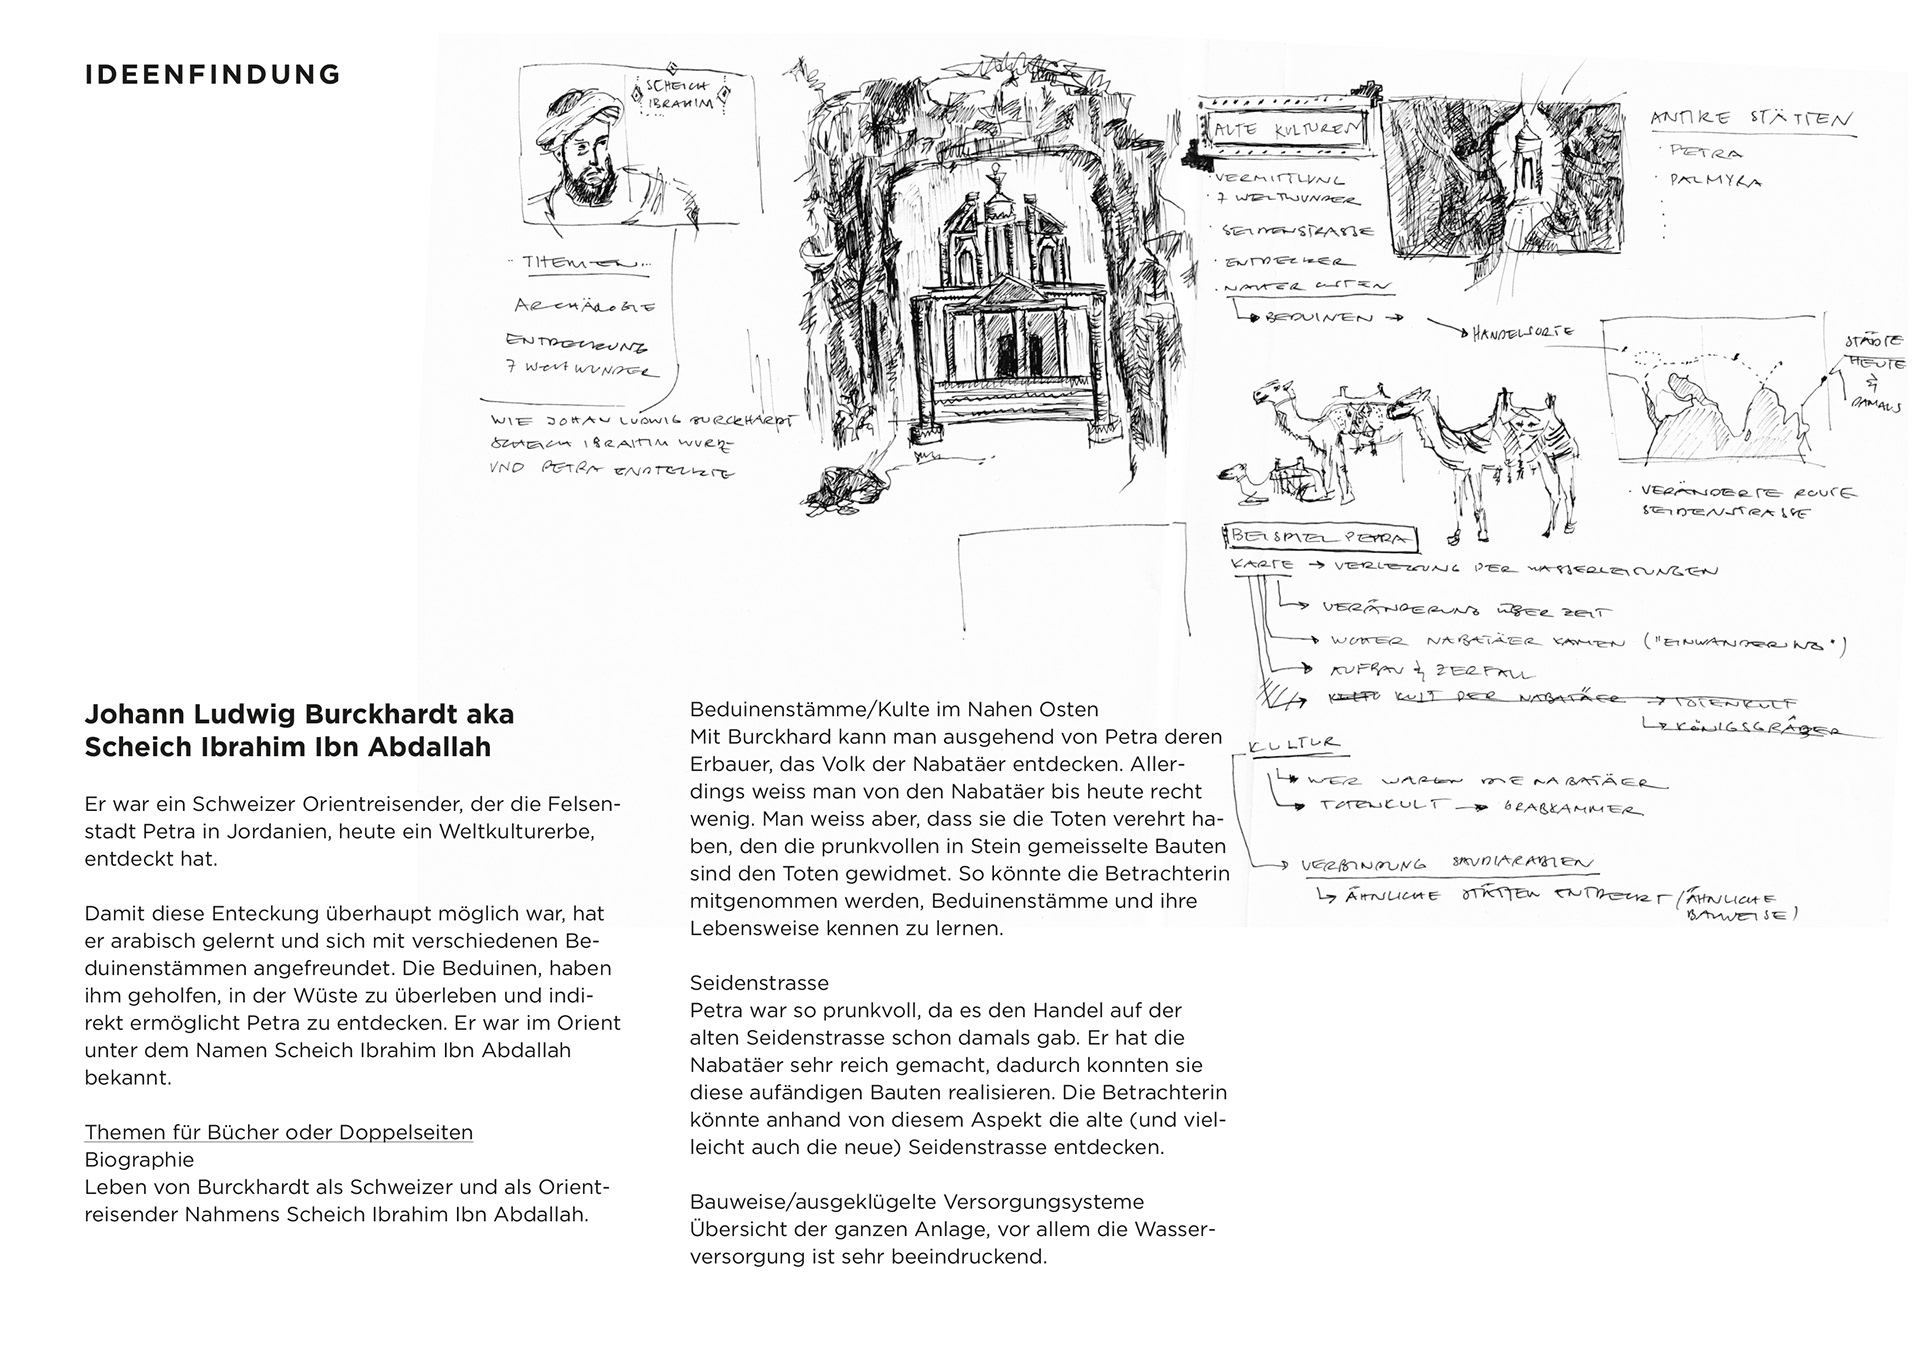 IDEENFINDUNG
SCHEICH
IBRAHIM
THEMEN
ARCHÄOLOGIE
ENTDECKUNG
7 WELTWUNDER
WIE JOHAN LUDWIG BURCKHARDT
SCHEICH IBRAHIM WURDE
UND PETRA ENTDECKTE
ALTE KULTUREN
· VERMITTLUNG
· 7 WELTWUNDER
· SEIDENSTRASSE
· ENTDECKER
· NAHER OSTEN
↳ BEDUINEN →
→ HANDELSORTE
ANTIKE STÄTTEN
· PETRA
· PALMYRA
STÄDTE
HEUTE
&
DAMALS
· VERÄNDERTE ROUTE
SEIDENSTRASSE
BEISPIEL PETRA
KARTE → VERLEGUNG DER WASSERLEITUNGEN
→ VERÄNDERUNG ÜBER ZEIT
→ WOHER NABATÄER KAMEN ("EINWANDERUNG")
→ AUFBAU & ZERFALL
KULT DER NABATÄER → TOTENKULT
↳ KÖNIGSGRÄBER
KULTUR
↳ WER WAREN DIE NABATÄER
→ TOTENKULT → GRABKAMMER
→ VERBINDUNG SAUDIARABIEN
↳ ÄHNLICHE STÄTTEN ENTDECKT (ÄHNLICHE
BAUWEISE)
Johann Ludwig Burckhardt aka
Scheich Ibrahim Ibn Abdallah
Er war ein Schweizer Orientreisender, der die Felsen-
stadt Petra in Jordanien, heute ein Weltkulturerbe,
entdeckt hat.
Damit diese Enteckung überhaupt möglich war, hat
er arabisch gelernt und sich mit verschiedenen Be-
duinenstämmen angefreundet. Die Beduinen, haben
ihm geholfen, in der Wüste zu überleben und indi-
rekt ermöglicht Petra zu entdecken. Er war im Orient
unter dem Namen Scheich Ibrahim Ibn Abdallah
bekannt.
Themen für Bücher oder Doppelseiten
Biographie
Leben von Burckhardt als Schweizer und als Orient-
reisender Nahmens Scheich Ibrahim Ibn Abdallah.
Beduinenstämme/Kulte im Nahen Osten
Mit Burckhard kann man ausgehend von Petra deren
Erbauer, das Volk der Nabatäer entdecken. Aller-
dings weiss man von den Nabatäer bis heute recht
wenig. Man weiss aber, dass sie die Toten verehrt ha-
ben, den die prunkvollen in Stein gemeisselte Bauten
sind den Toten gewidmet. So könnte die Betrachterin
mitgenommen werden, Beduinenstämme und ihre
Lebensweise kennen zu lernen.
Seidenstrasse
Petra war so prunkvoll, da es den Handel auf der
alten Seidenstrasse schon damals gab. Er hat die
Nabatäer sehr reich gemacht, dadurch konnten sie
diese aufändigen Bauten realisieren. Die Betrachterin
könnte anhand von diesem Aspekt die alte (und viel-
leicht auch die neue) Seidenstrasse entdecken.
Bauweise/ausgeklügelte Versorgungsysteme
Übersicht der ganzen Anlage, vor allem die Wasser-
versorgung ist sehr beeindruckend.